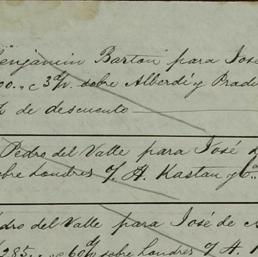 Benjamin Barton para José
00.. c 3d/v. sobre Alberdi y Prade
% de descuento
Pedro del Valle para José d
obre Londres o/ A. Kastan y Ca..
dro del Valle para José de A
285.. c 60 d/v sobre Londres o/ A. K